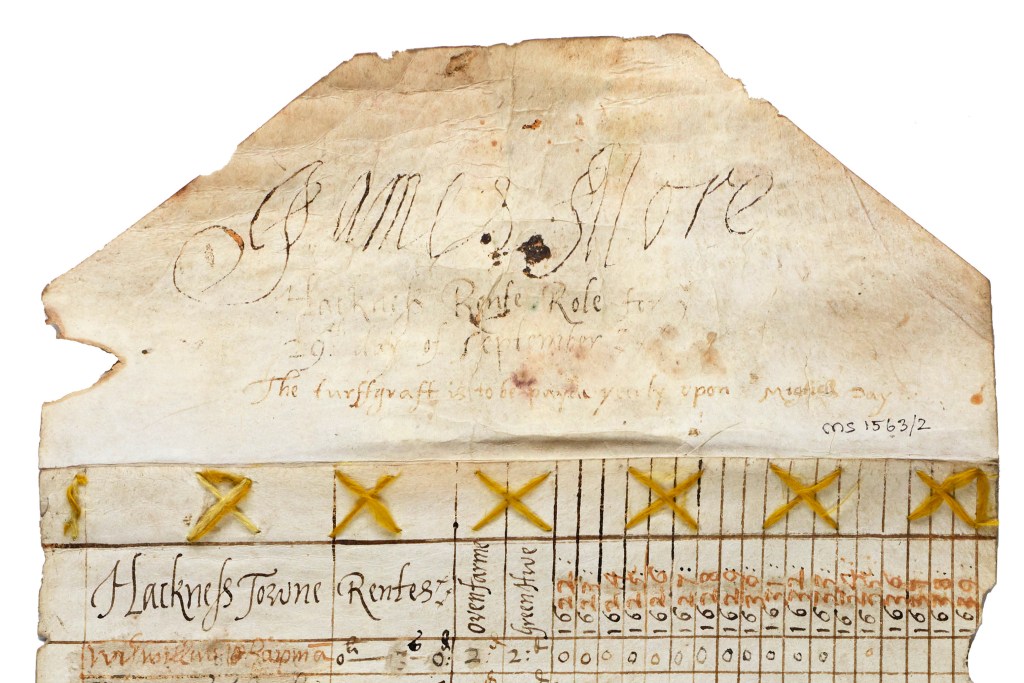 James More
Hackness Rente Role for
29th day of September
The turffgraft is to be payed yearly upon Mighell Day
MS 1563/2
Hackness Towne Rentes
Ovenfarme
Greenhwe
1622
1623
1624
1625
1626
1627
1628
1629
1630
1631
1632
1633
1634
1635
1636
1637
1638
1639
Chapmā 0 6 0
2: 2: 0 0 0 0 0 0 0 0 0 0 0 0 0